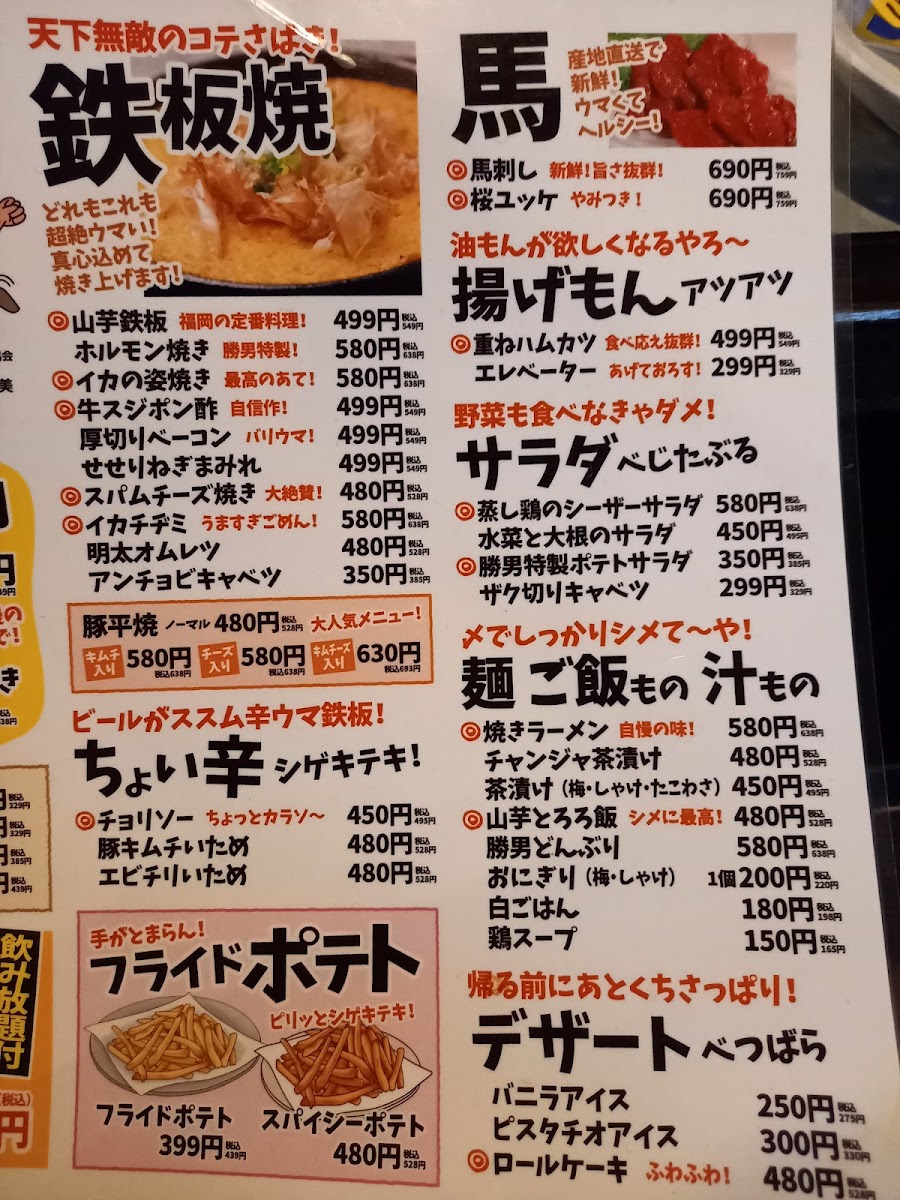 天下無敵のコテさばき!
鉄板焼
どれもこれも
超絶ウマい!
真心込めて
焼き上げます!
◎山芋鉄板 福岡の定番料理! 499円 税込549円
ホルモン焼き 勝男特製! 580円 税込638円
◎イカの姿焼き 最高のあて! 580円 税込638円
◎牛スジポン酢 自信作! 499円 税込549円
厚切りベーコン バリウマ! 499円 税込549円
せせりねぎまみれ 499円 税込549円
◎スパムチーズ焼き 大絶賛! 480円 税込528円
◎イカチヂミ うますぎごめん! 580円 税込638円
明太オムレツ 480円 税込528円
アンチョビキャベツ 350円 税込385円
豚平焼 ノーマル 480円 税込528円 大人気メニュー!
キムチ入り 580円 税込638円 チーズ入り 580円 税込638円 キムチーズ入り 630円 税込693円
ビールがススム辛ウマ鉄板!
ちょい辛 シゲキテキ!
◎チョリソー ちょっとカラソ〜 450円 税込495円
豚キムチいため 480円 税込528円
エビチリいため 480円 税込528円
手がとまらん!
フライドポテト
ピリッとシゲキテキ!
フライドポテト 399円 税込439円
スパイシーポテト 480円 税込528円
馬
産地直送で
新鮮!
ウマくて
ヘルシー!
◎馬刺し 新鮮!旨さ抜群! 690円 税込759円
◎桜ユッケ やみつき! 690円 税込759円
油もんが欲しくなるやろ〜
揚げもん アツアツ
◎重ねハムカツ 食べ応え抜群! 499円 税込549円
エレベーター あげておろす! 299円 税込329円
野菜も食べなきゃダメ!
サラダ べじたぶる
◎蒸し鶏のシーザーサラダ 580円 税込638円
水菜と大根のサラダ 450円 税込495円
◎勝男特製ポテトサラダ 350円 税込385円
ザク切りキャベツ 299円 税込329円
〆でしっかりシメて〜や!
麺 ご飯もの 汁もの
◎焼きラーメン 自慢の味! 580円 税込638円
チャンジャ茶漬け 480円 税込528円
茶漬け(梅・しゃけ・たこわさ) 450円 税込495円
◎山芋とろろ飯 シメに最高! 480円 税込528円
勝男どんぶり 580円 税込638円
おにぎり(梅・しゃけ) 1個200円 税込220円
白ごはん 180円 税込198円
鶏スープ 150円 税込165円
帰る前にあとくちさっぱり!
デザート べつばら
バニラアイス 250円 税込275円
ピスタチオアイス 300円 税込330円
◎ロールケーキ ふわふわ! 480円 税込528円
飲み放題付
(税込)
円